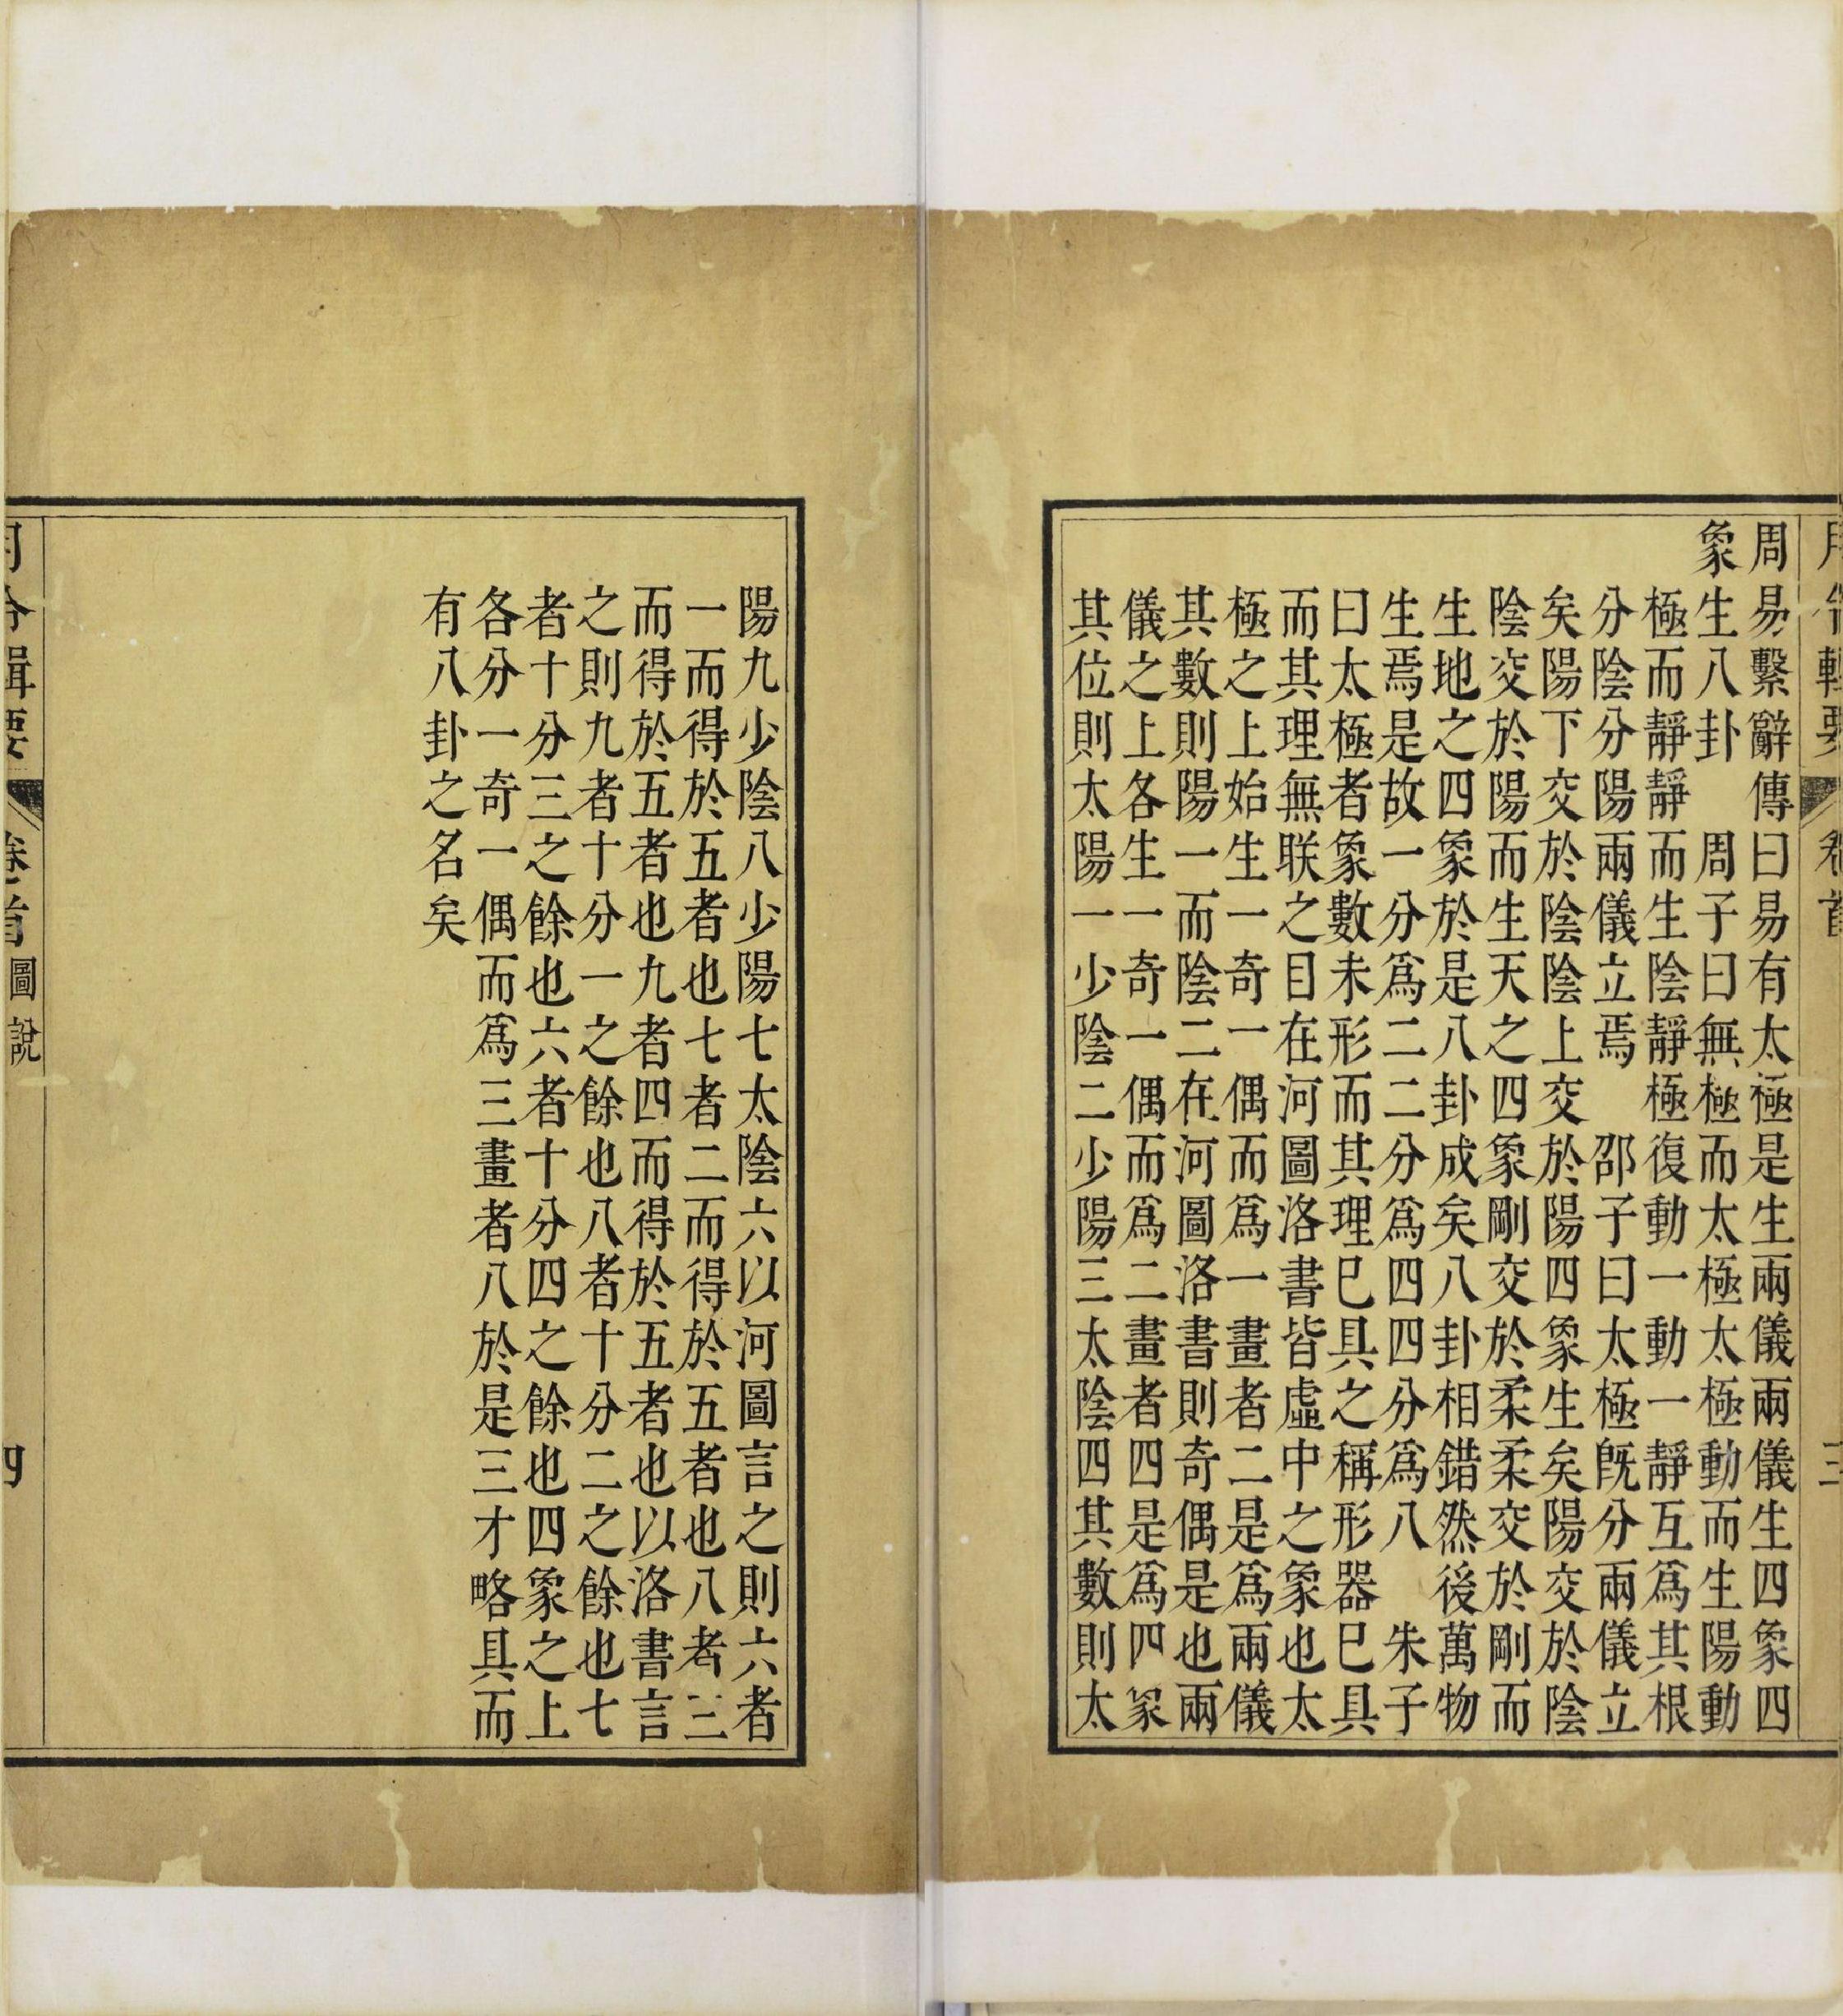 周易繫辭傳曰易有太極是生兩儀兩儀生四象四
象生八卦　周子曰無極而太極太極動而生陽動
極而靜靜而生陰靜極復動一動一靜互爲其根
分陰分陽兩儀立焉　邵子曰太極旣分兩儀立
矣陽下交於陰陰上交於陽四象生矣陽交於陰
陰交於陽而生天之四象剛交於柔柔交於剛而
生地之四象於是八卦成矣八卦相錯然後萬物
生焉是故一分爲二二分爲四四分爲八　朱子
曰太極者象數未形而其理已具之稱形器已具
而其理無联之目在河圖洛書皆虛中之象也太
極之上始生一奇一偶而爲一畫者二是爲兩儀
其數則陽一而陰二在河圖洛書則奇偶是也兩
儀之上各生一奇一偶而爲二畫者四是爲四象
其位則太陽一少陰二少陽三太陰四其數則太
陽九少陰八少陽七太陰六以河圖言之則六者
一而得於五者也七者二而得於五者也八者三
而得於五者也九者四而得於五者也以洛書言
之則九者十分一之餘也八者十分二之餘也七
者十分三之餘也六者十分四之餘也四象之上
各分一奇一偶而爲三畫者八於是三才略具而
有八卦之名矣
輯要
卷首
圖說
四